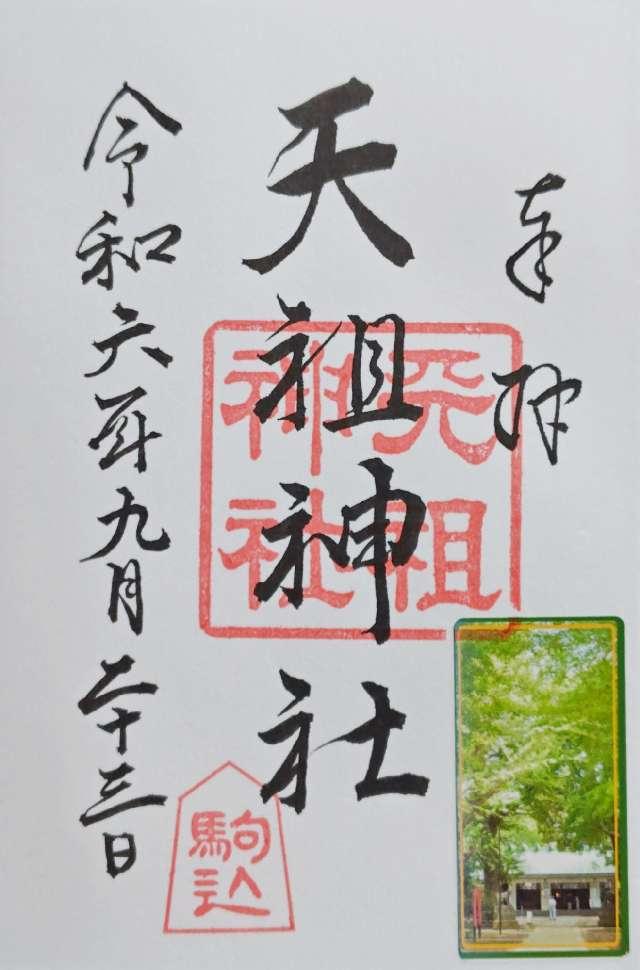 奉拝
天祖神社
天祖
神社
駒込
令和六年九月二十三日